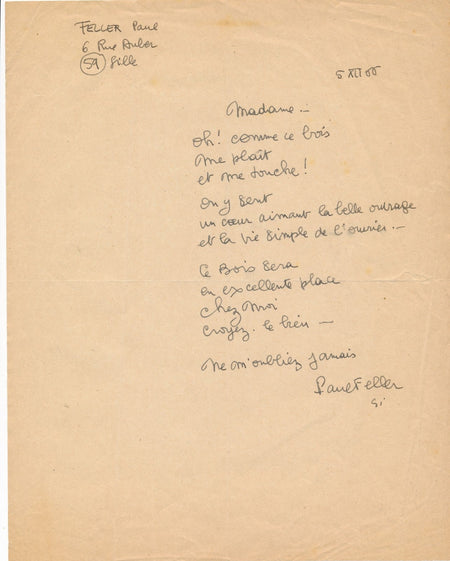 FELLER Paul
6 Rue Auber
59 Lille
5 XII 66
Madame —
Oh! comme ce bois
me plaît
et me touche!
on y sent
un cœur aimant la belle ouvrage
et la vie simple de l'ouvrier. —
Ce Bois sera
en excellente place
chez moi
croyez-le bien —
Ne m'oubliez jamais
Paul Feller